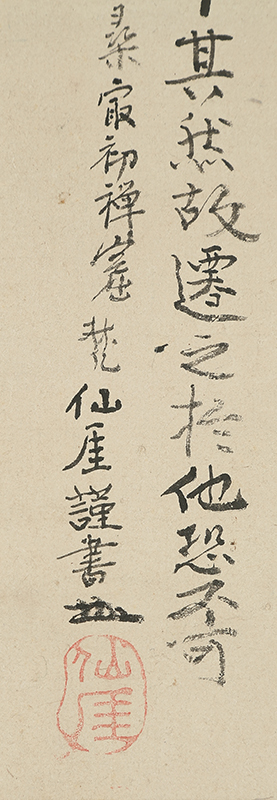 其然故遷之於他恐不可
桑最初禅窟梵仙厓謹書
仙厓